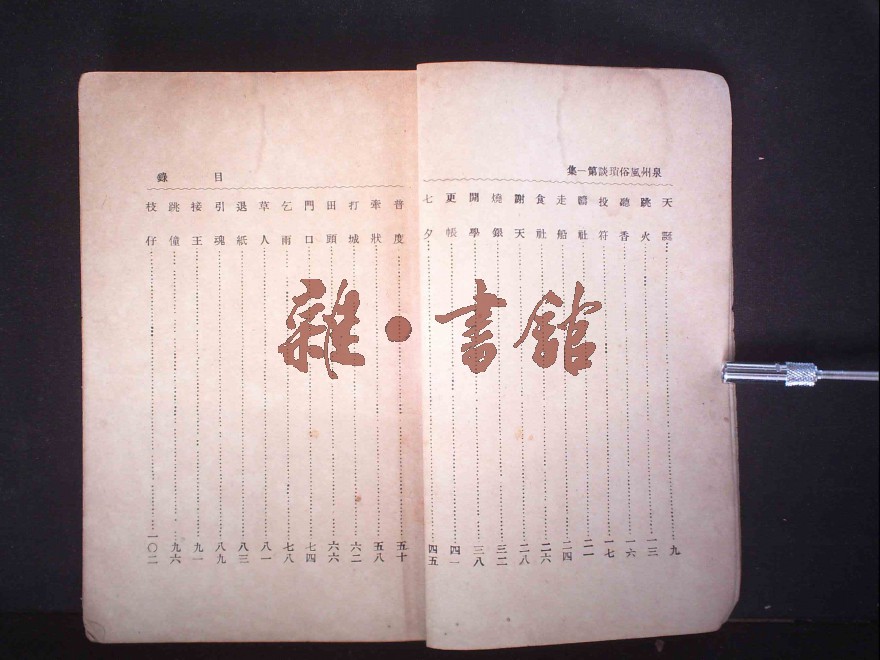 泉州風俗瑣談第一集
天誕……九
跳火……一三
聽香……一六
投符……一七
醋社……二一
走船……二四
食社……二六
謝天……二八
燒銀……三二
開學……三八
更帳……四一
七夕……四五
目錄
普度……五十
牽狀……五八
打城……六二
田頭……六六
門口……七四
乞雨……七八
草人……八一
退紙……八三
引魂……八九
接王……九一
跳僮……九六
枝仔……一〇二
雜·書館